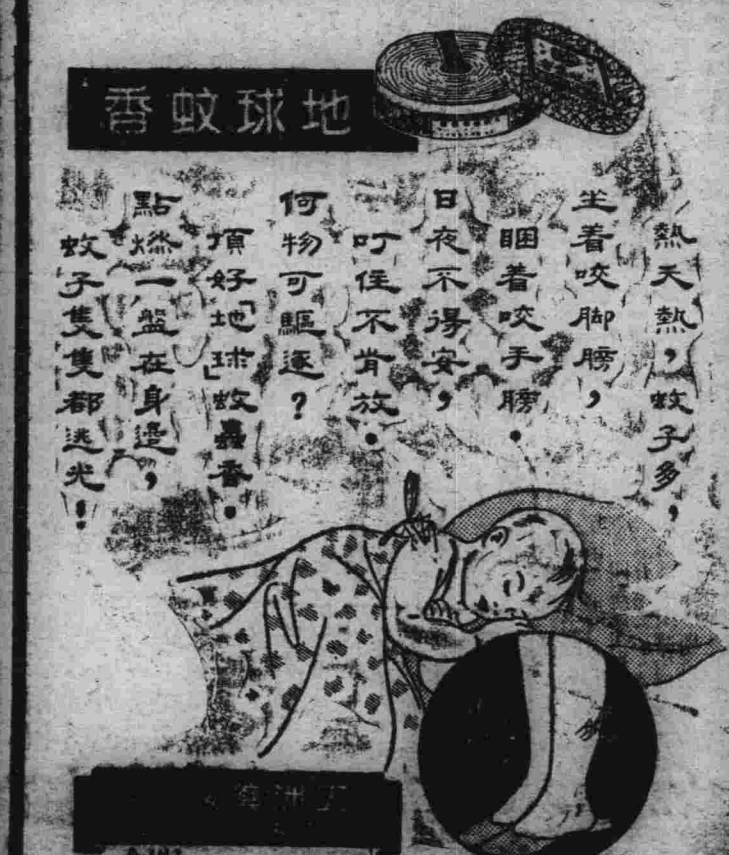 地球蚊香
熱天熱，蚊子多，
坐着咬脚膀，
睏着咬手膀．
日夜不得安，
叮住不肯放．
何物可驅逐？
頂好「地球」蚊蟲香．
點燃一盤在身邊，
蚊子隻隻都逃光！